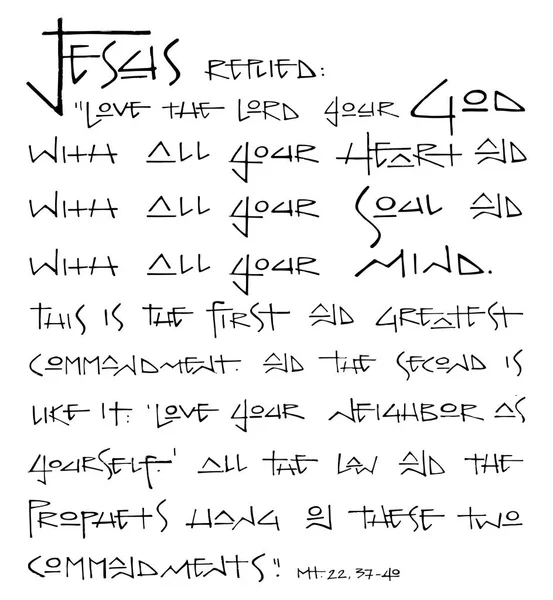 JESUS REPLIED:
"LOVE THE LORD YOUR GOD
WITH ALL YOUR HEART AND
WITH ALL YOUR SOUL AND
WITH ALL YOUR MIND.
THIS IS THE FIRST AND GREATEST
COMMANDMENT. AND THE SECOND IS
LIKE IT: 'LOVE YOUR NEIGHBOR AS
YOURSELF.' ALL THE LAW AND THE
PROPHETS HANG ON THESE TWO
COMMANDMENTS". MT. 22, 37-40